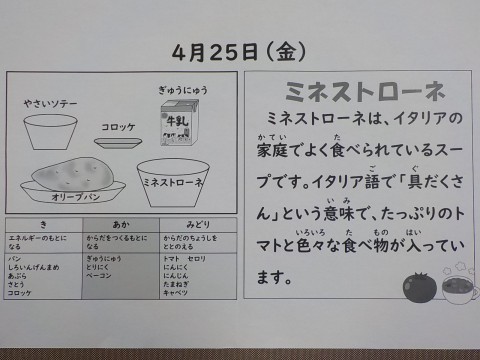 4月25日（金）
やさいソテー
コロッケ
ぎゅうにゅう
牛乳
オリーブパン
ミネストローネ
き
エネルギーのもとに
なる
パン
しろいんげんまめ
あぶら
さとう
コロッケ
あか
からだをつくるもとに
なる
ぎゅうにゅう
とりにく
ベーコン
みどり
からだのちょうしを
ととのえる
トマト　セロリ
にんにく
にんじん
たまねぎ
キャベツ
ミネストローネ
ミネストローネは、イタリアの
かてい　た
家庭でよく食べられているスー
ご　ぐ
プです。イタリア語で「具だくさ
いみ
ん」という意味で、たっぷりのト
いろいろ　た　もの　はい
マトと色々な食べ物が入ってい
ます。